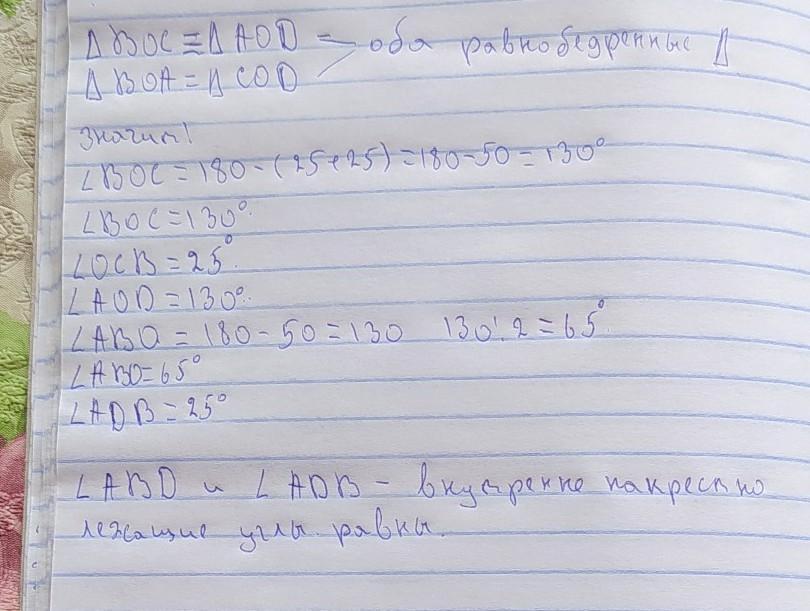 Δ BOC = Δ AOD — оба равнобедренные Δ
Δ BOA = Δ COD
значит!
∠BOC = 180 - (25+25) = 180 - 50 = 130°
∠BOC = 130°.
∠OCB = 25°.
∠AOD = 130°.
∠ABO = 180 - 50 = 130 130:2 = 65°.
∠ABO = 65°
∠ADB = 25°
∠ABD и ∠ADB - внутренне накрестно
лежащие углы равны.